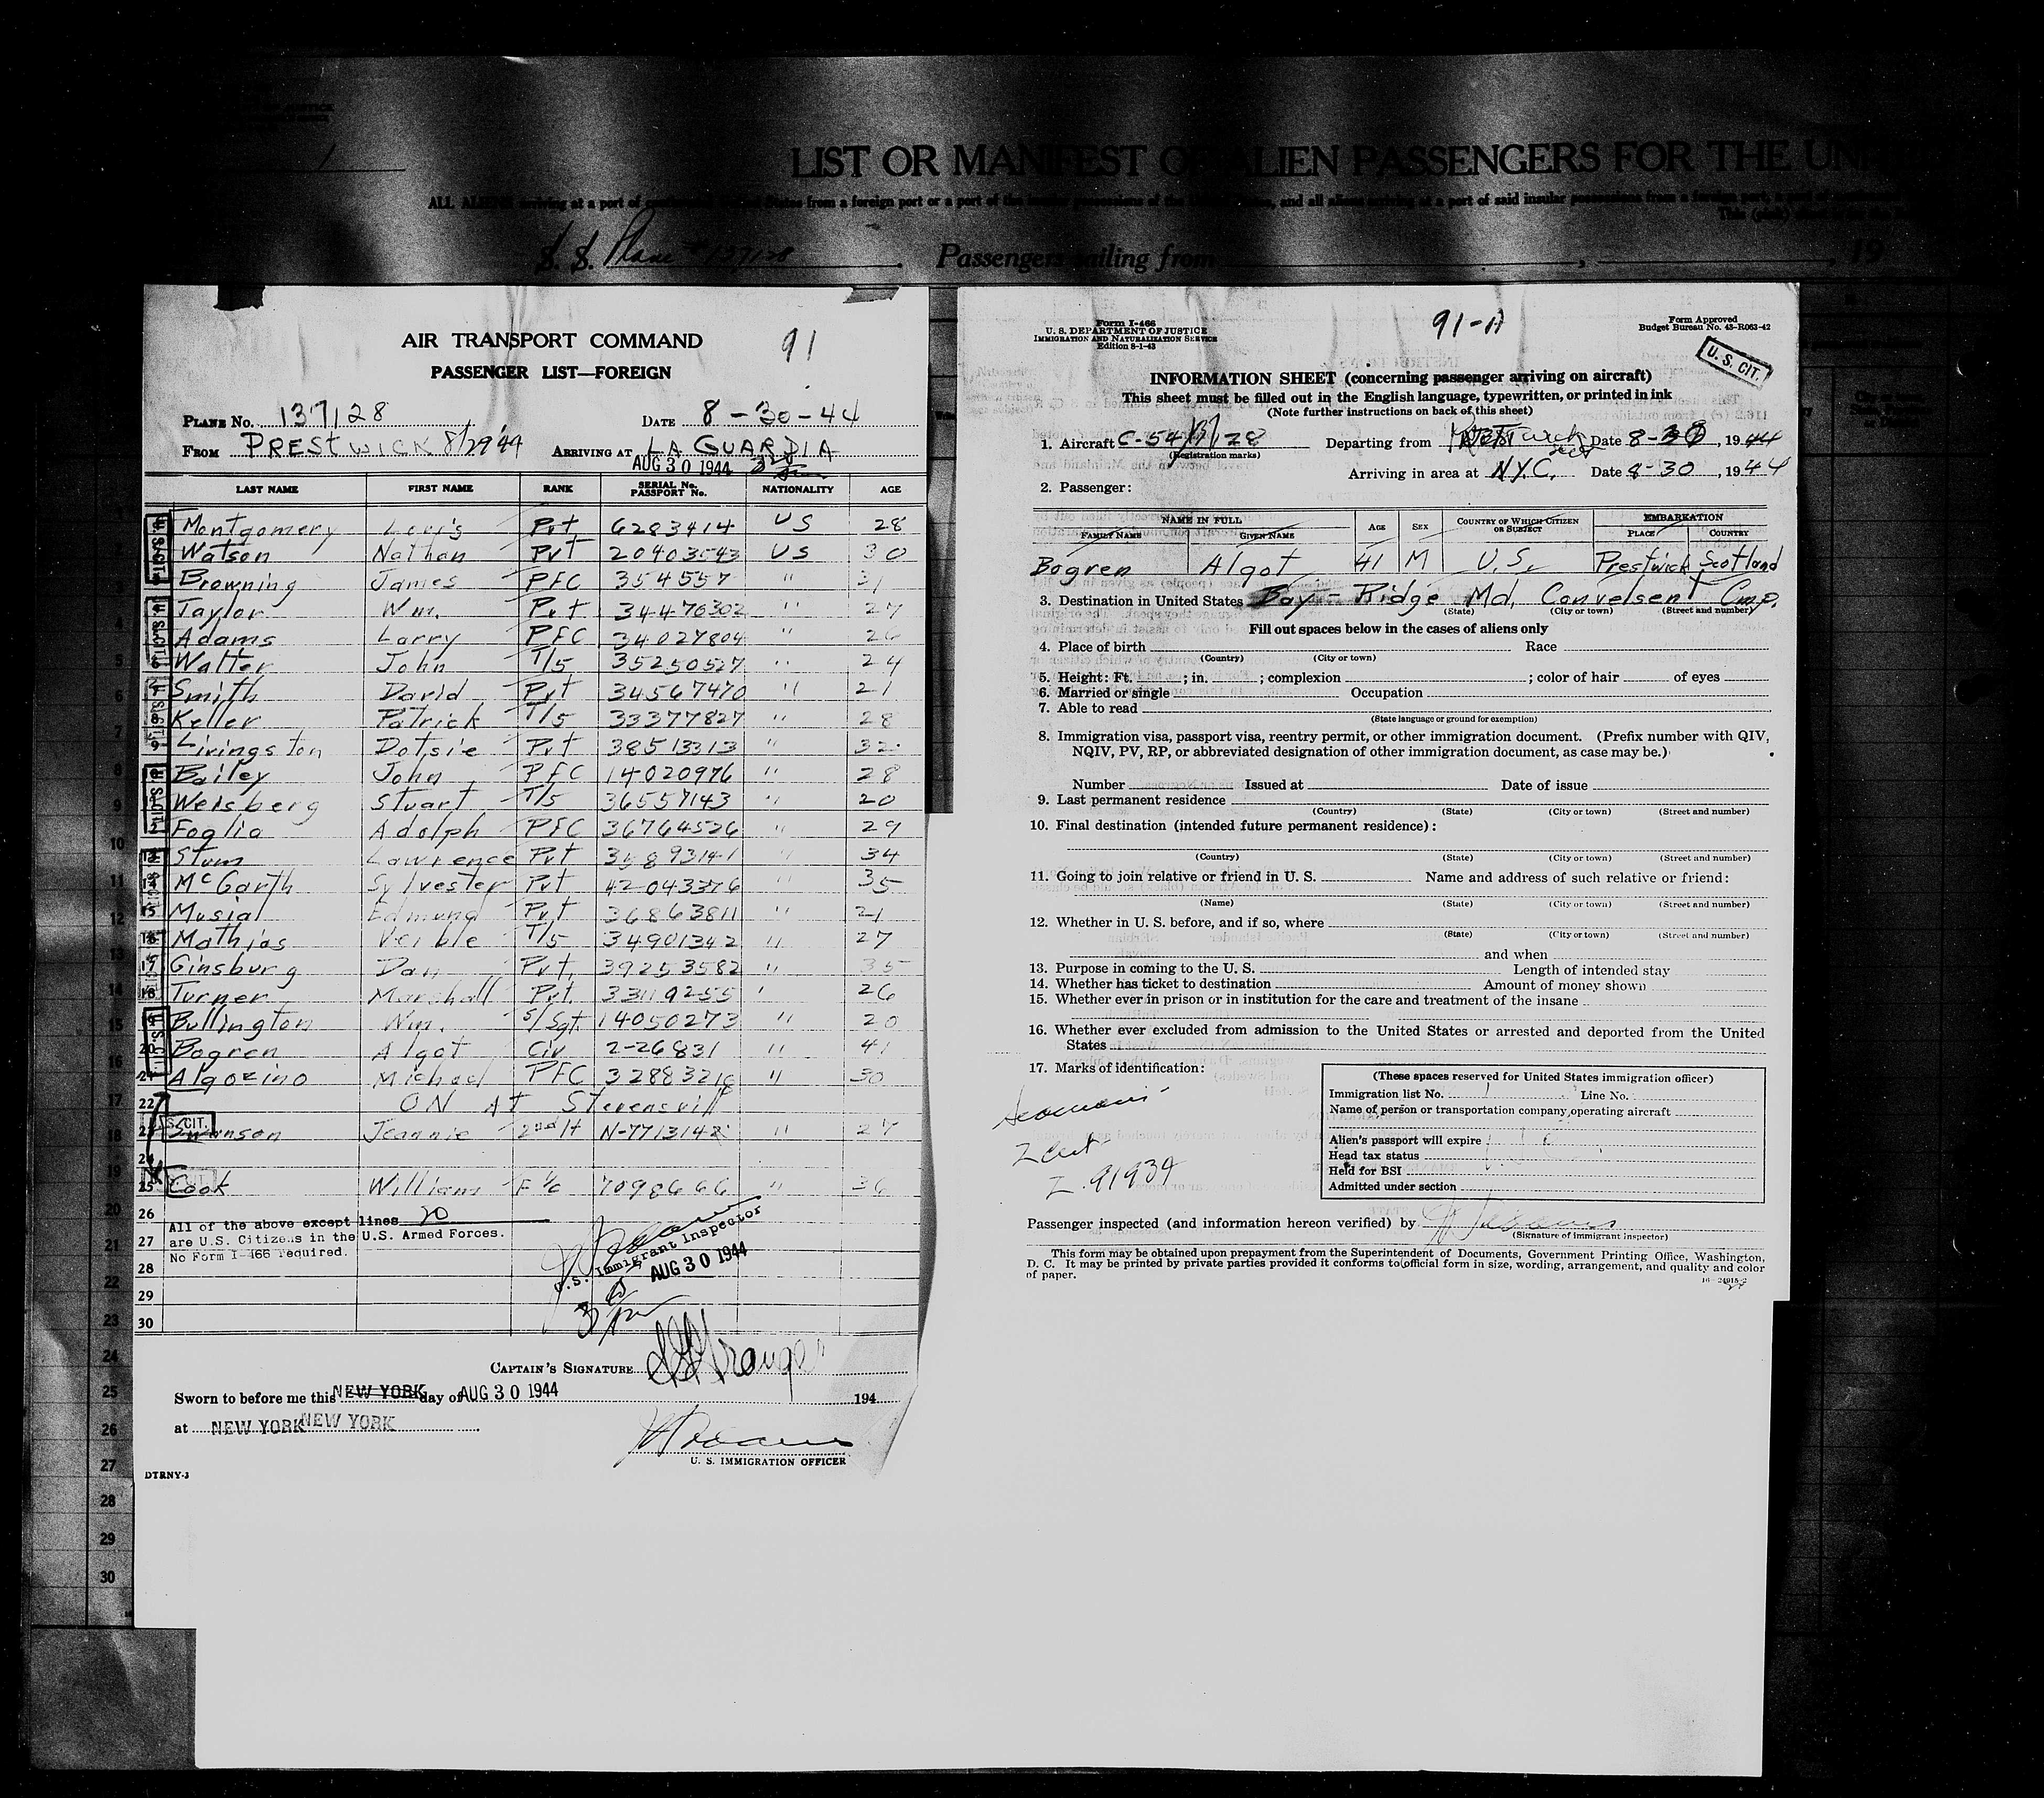 LIST OR MANIFEST OF ALIEN PASSENGERS FOR THE UNI
ALL ALIENS arriving at a port of States from a foreign port or a port of the insular possessions of the , and all aliens arriving at a port of said insular possessions from a foreign port, a port of
S. S. Plane #137128 Passengers sailing from , 19
AIR TRANSPORT COMMAND
91
PASSENGER LIST—FOREIGN
PLANE No. 137128 DATE 8-30-44
FROM PRESTWICK 8/29/44 ARRIVING AT LA GUARDIA
AUG 30 1944
LAST NAME FIRST NAME RANK SERIAL No. PASSPORT No. NATIONALITY AGE
Montgomery Louis Pvt 6283414 US 28
Watson Nathan Pvt 20403543 US 30
Browning James PFC 354557 " 31
Taylor Wm. Pvt 34476302 " 27
Adams Larry PFC 34027804 " 26
Walter John T/5 35250527 " 24
Smith David Pvt 34567470 " 21
Keller Patrick T/5 33377827 " 28
9 Livingston Dotsie Pvt 38513313 " 32
Bailey John PFC 14020976 " 28
Weisberg Stuart T/5 36557143 " 20
Foglio Adolph PFC 36764526 " 29
13 Stum Lawrence Pvt 35893141 " 34
14 McGarth Sylvester Pvt 42043376 " 35
15 Musial Edmund Pvt 36863811 " 21
16 Mathias Verble T/5 34901342 " 27
17 Ginsburg Dan Pvt. 39253582 " 35
18 Turner Marshall Pvt. 33119255 " 26
Bullington Wm. S/Sgt. 14050273 " 20
20 Bogren Algot Civ 2-26831 " 41
21 Algozino Michael PFC 32883216 " 30
22 ON AT Stevensvill
23 Swanson Jeannie 2nd Lt N-771314 " 27
24
25 Cook William F 1/c 7098666 " 36
26 All of the above except lines 20
27 are U.S. Citizens in the U.S. Armed Forces.
No Form I-466 required.
28
29
30
U.S. Immigrant Inspector
AUG 30 1944
CAPTAIN'S SIGNATURE
Sworn to before me this NEW YORK day of AUG 30 1944 194
at NEW YORK NEW YORK
U. S. IMMIGRATION OFFICER
DTRNY-3
Form I-466
U. S. DEPARTMENT OF JUSTICE
IMMIGRATION AND NATURALIZATION SERVICE
Edition 8-1-43
91-A
Form Approved
Budget Bureau No. 43-R063-42
U. S. CIT.
INFORMATION SHEET (concerning passenger arriving on aircraft)
This sheet must be filled out in the English language, typewritten, or printed in ink
(Note further instructions on back of this sheet)
1. Aircraft C-54 137128 Departing from Prestwick Scot Date 8-30, 1944
(Registration marks)
Arriving in area at N.Y.C. Date 8-30, 1944
2. Passenger:
NAME IN FULL AGE SEX COUNTRY OF WHICH CITIZEN OR SUBJECT EMBARKATION
FAMILY NAME GIVEN NAME PLACE COUNTRY
Bogren Algot 41 M U.S. Prestwick Scotland
3. Destination in United States Bay-Ridge Md, Convelsent Cmp.
(State) (City or town) (Street and number)
Fill out spaces below in the cases of aliens only
4. Place of birth Race
(Country) (City or town)
5. Height: Ft. ; in. ; complexion ; color of hair of eyes
6. Married or single Occupation
7. Able to read
(State language or ground for exemption)
8. Immigration visa, passport visa, reentry permit, or other immigration document. (Prefix number with QIV,
NQIV, PV, RP, or abbreviated designation of other immigration document, as case may be.)
Number Issued at Date of issue
9. Last permanent residence
(Country) (State) (City or town) (Street and number)
10. Final destination (intended future permanent residence):
(Country) (State) (City or town) (Street and number)
11. Going to join relative or friend in U. S. Name and address of such relative or friend:
(Name) (State) (City or town) (Street and number)
12. Whether in U. S. before, and if so, where
(State) (City or town) (Street and number)
and when
13. Purpose in coming to the U. S. Length of intended stay
14. Whether has ticket to destination Amount of money shown
15. Whether ever in prison or in institution for the care and treatment of the insane
16. Whether ever excluded from admission to the United States or arrested and deported from the United
States
17. Marks of identification:
Seamans
Z cert
Z. 91934
(These spaces reserved for United States immigration officer)
Immigration list No. Line No.
Name of person or transportation company operating aircraft
Alien's passport will expire
Head tax status
Held for BSI
Admitted under section
Passenger inspected (and information hereon verified) by
(Signature of immigrant inspector)
This form may be obtained upon prepayment from the Superintendent of Documents, Government Printing Office, Washington,
D. C. It may be printed by private parties provided it conforms to official form in size, wording, arrangement, and quality and color
of paper.
16—24915-2